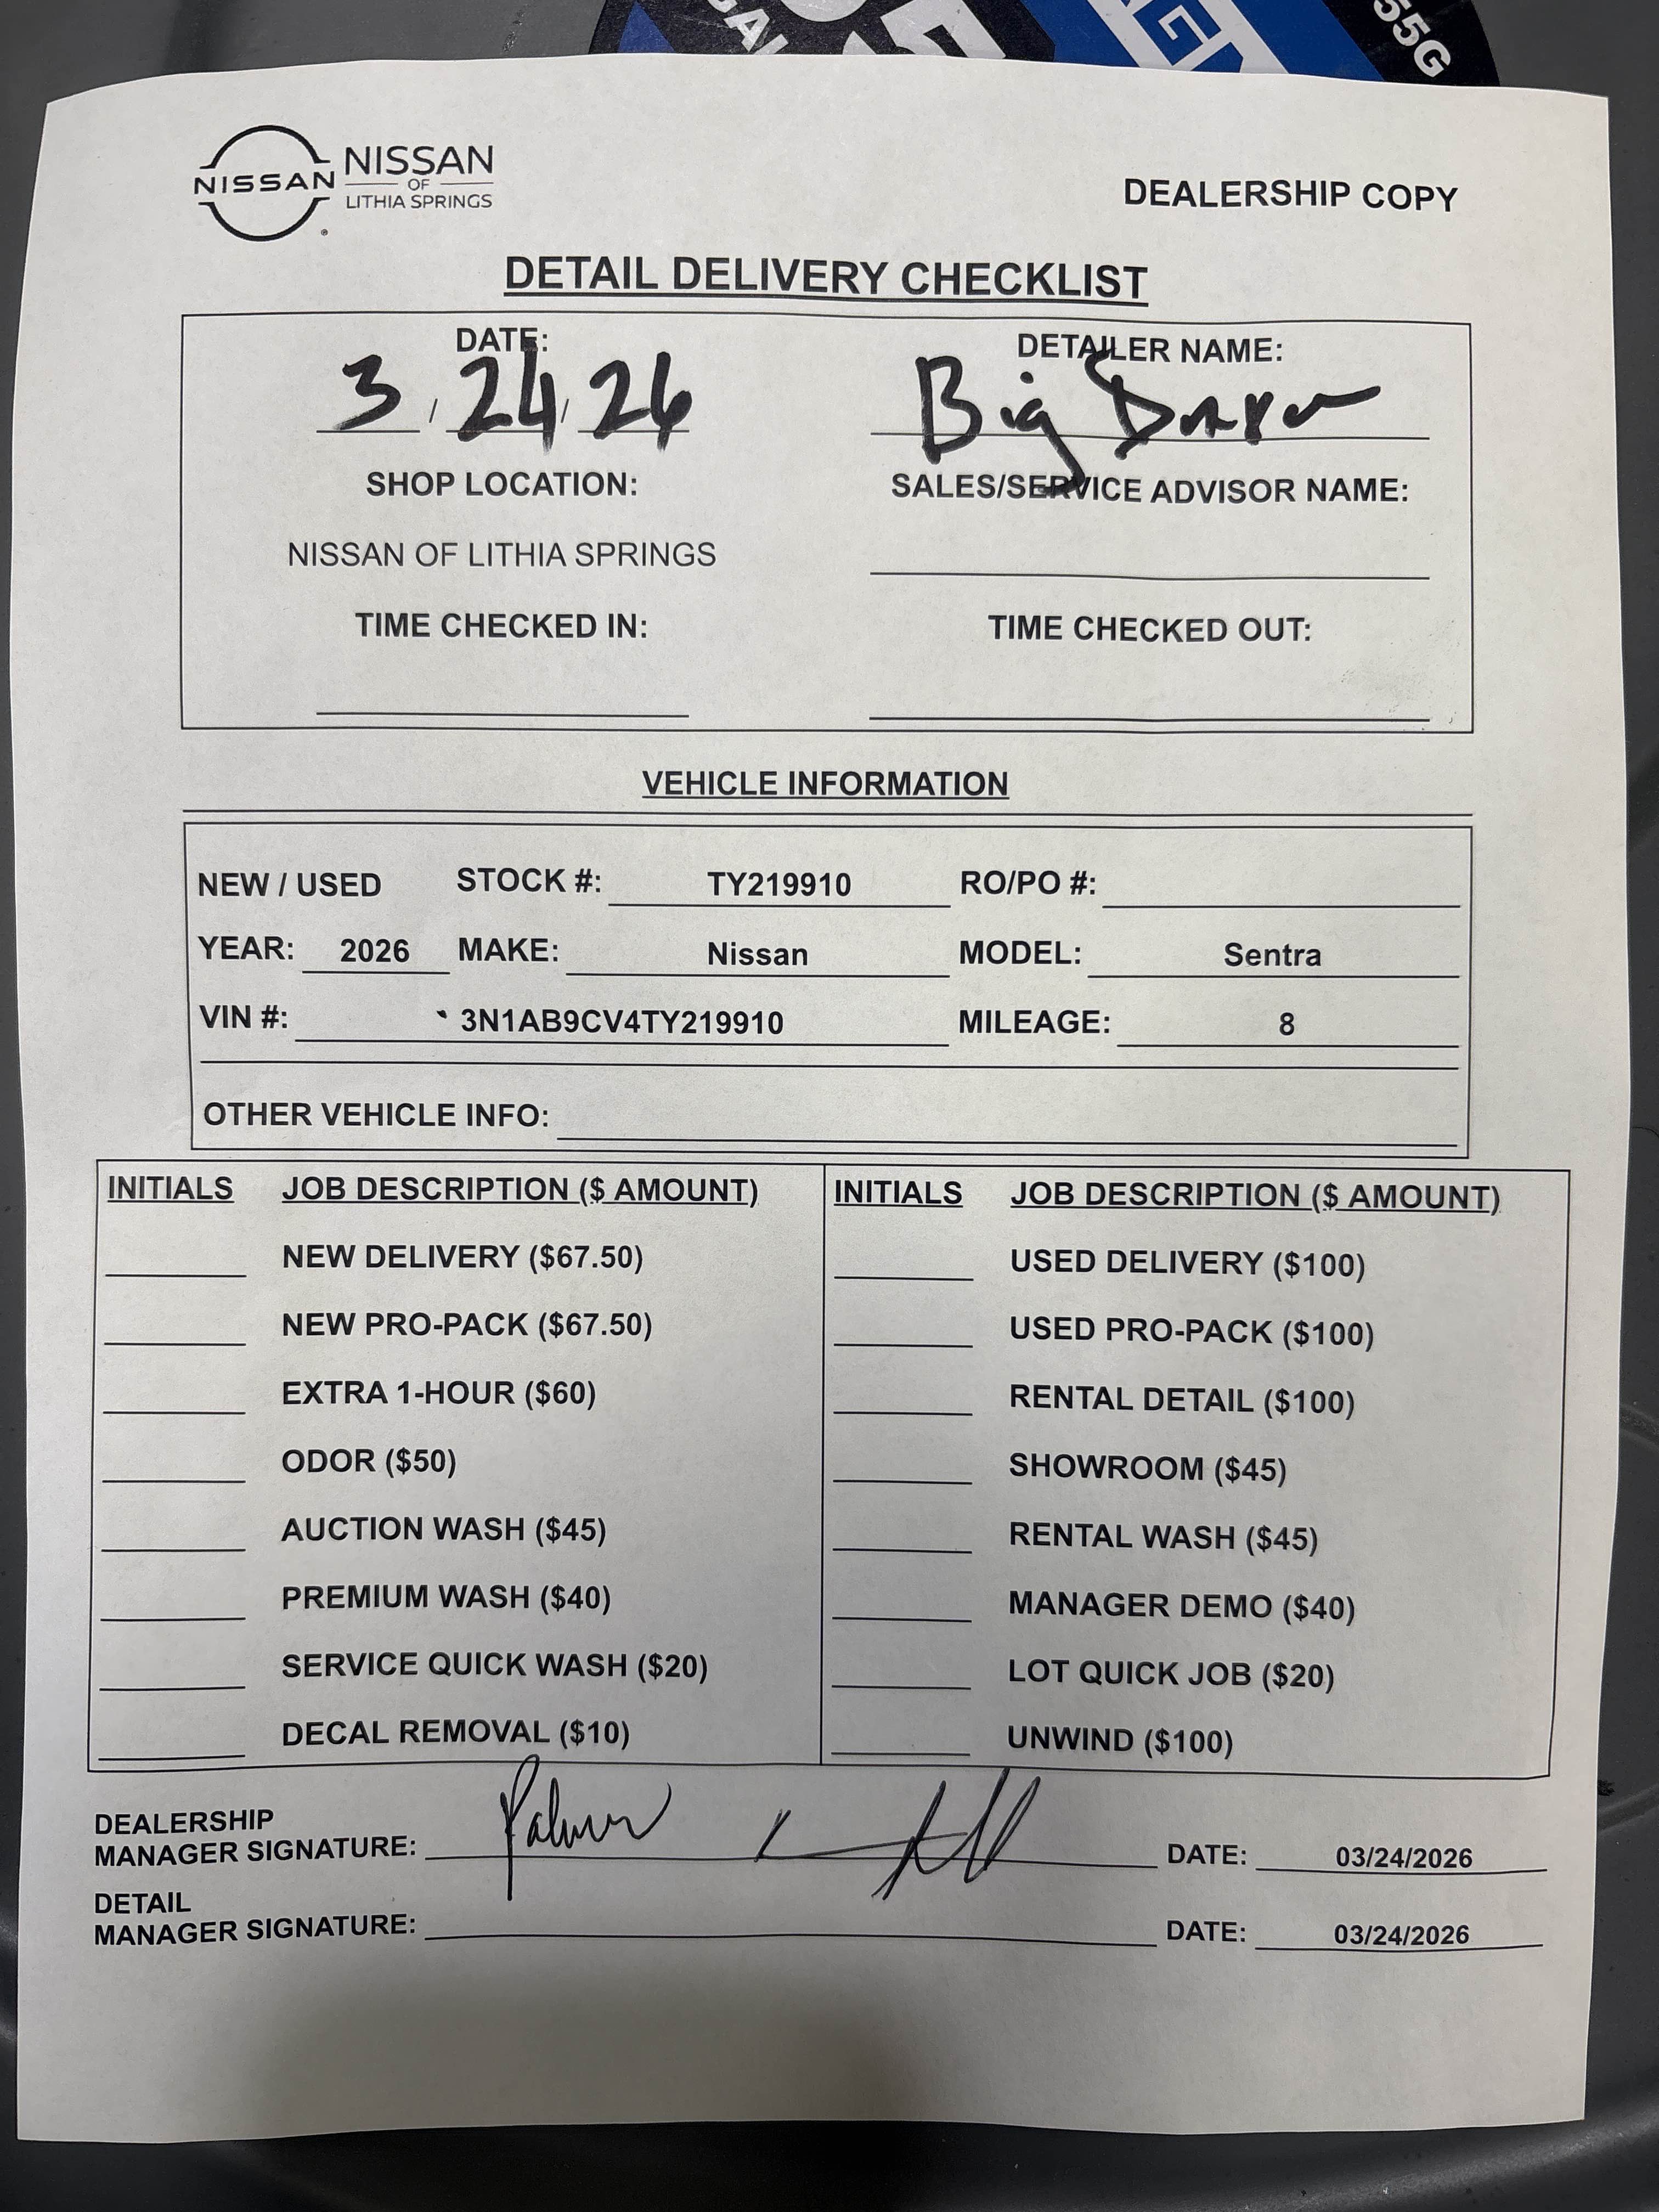 55G
NISSAN
NISSAN
OF
LITHIA SPRINGS
DEALERSHIP COPY
DETAIL DELIVERY CHECKLIST
DATE:
3 / 24 / 26
DETAILER NAME:
Big
SHOP LOCATION:
SALES/SERVICE ADVISOR NAME:
NISSAN OF LITHIA SPRINGS
TIME CHECKED IN:
TIME CHECKED OUT:
VEHICLE INFORMATION
NEW / USED STOCK #: TY219910 RO/PO #:
YEAR: 2026 MAKE: Nissan MODEL: Sentra
VIN #: 3N1AB9CV4TY219910 MILEAGE: 8
OTHER VEHICLE INFO:
INITIALS JOB DESCRIPTION ($ AMOUNT)
NEW DELIVERY ($67.50)
NEW PRO-PACK ($67.50)
EXTRA 1-HOUR ($60)
ODOR ($50)
AUCTION WASH ($45)
PREMIUM WASH ($40)
SERVICE QUICK WASH ($20)
DECAL REMOVAL ($10)
INITIALS JOB DESCRIPTION ($ AMOUNT)
USED DELIVERY ($100)
USED PRO-PACK ($100)
RENTAL DETAIL ($100)
SHOWROOM ($45)
RENTAL WASH ($45)
MANAGER DEMO ($40)
LOT QUICK JOB ($20)
UNWIND ($100)
DEALERSHIP
MANAGER SIGNATURE: Palmer DATE: 03/24/2026
DETAIL
MANAGER SIGNATURE: DATE: 03/24/2026